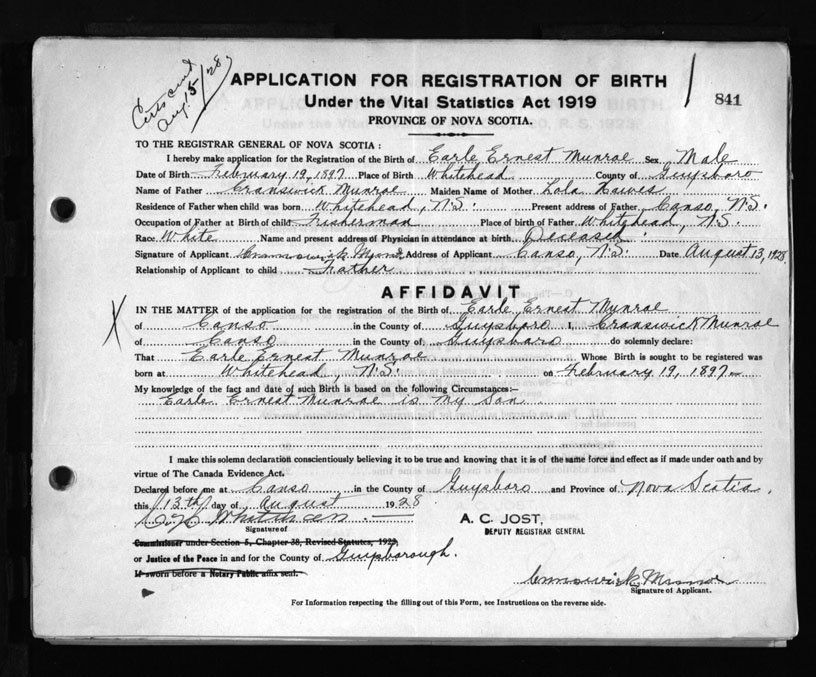 Aug. 15/28
APPLICATION FOR REGISTRATION OF BIRTH
841
Under the Vital Statistics Act 1919
PROVINCE OF NOVA SCOTIA.
TO THE REGISTRAR GENERAL OF NOVA SCOTIA :
I hereby make application for the Registration of the Birth of Earle Ernest Munroe Sex Male
Date of Birth February 19, 1897 Place of Birth Whitehead County of Guysboro
Name of Father Cranswick Munroe Maiden Name of Mother Lola
Residence of Father when child was born Whitehead, N.S. Present address of Father Canso, N.S.
Occupation of Father at Birth of child Fisherman Place of birth of Father Whitehead, N.S.
Race White Name and present address of Physician in attendance at birth Deceased.
Signature of Applicant Cranswick Munroe Address of Applicant Canso, N.S. Date August 13, 1928.
Relationship of Applicant to child Father
AFFIDAVIT
X IN THE MATTER of the application for the registration of the Birth of Earle Ernest Munroe
of Canso in the County of Guysboro I, Cranswick Munroe
of Canso in the County of Guysboro do solemnly declare:
That Earle Ernest Munroe Whose Birth is sought to be registered was
born at Whitehead, N.S. on February 19, 1897
My knowledge of the fact and date of such Birth is based on the following Circumstances:—
Earle Ernest Munroe is My Son
I make this solemn declaration conscientiously believing it to be true and knowing that it is of the same force and effect as if made under oath and by
virtue of The Canada Evidence Act.
Declared before me at Canso in the County of Guysboro and Province of Nova Scotia.
this 13th day of August 1928
A. C. JOST,
DEPUTY REGISTRAR GENERAL
Signature of
Commissioner under Section 5, Chapter 38, Revised Statutes, 1923,
or Justice of the Peace in and for the County of Guysborough.
If sworn before a Notary Public affix seal.
Cranswick Munroe
Signature of Applicant.
For Information respecting the filling out of this Form, see Instructions on the reverse side.